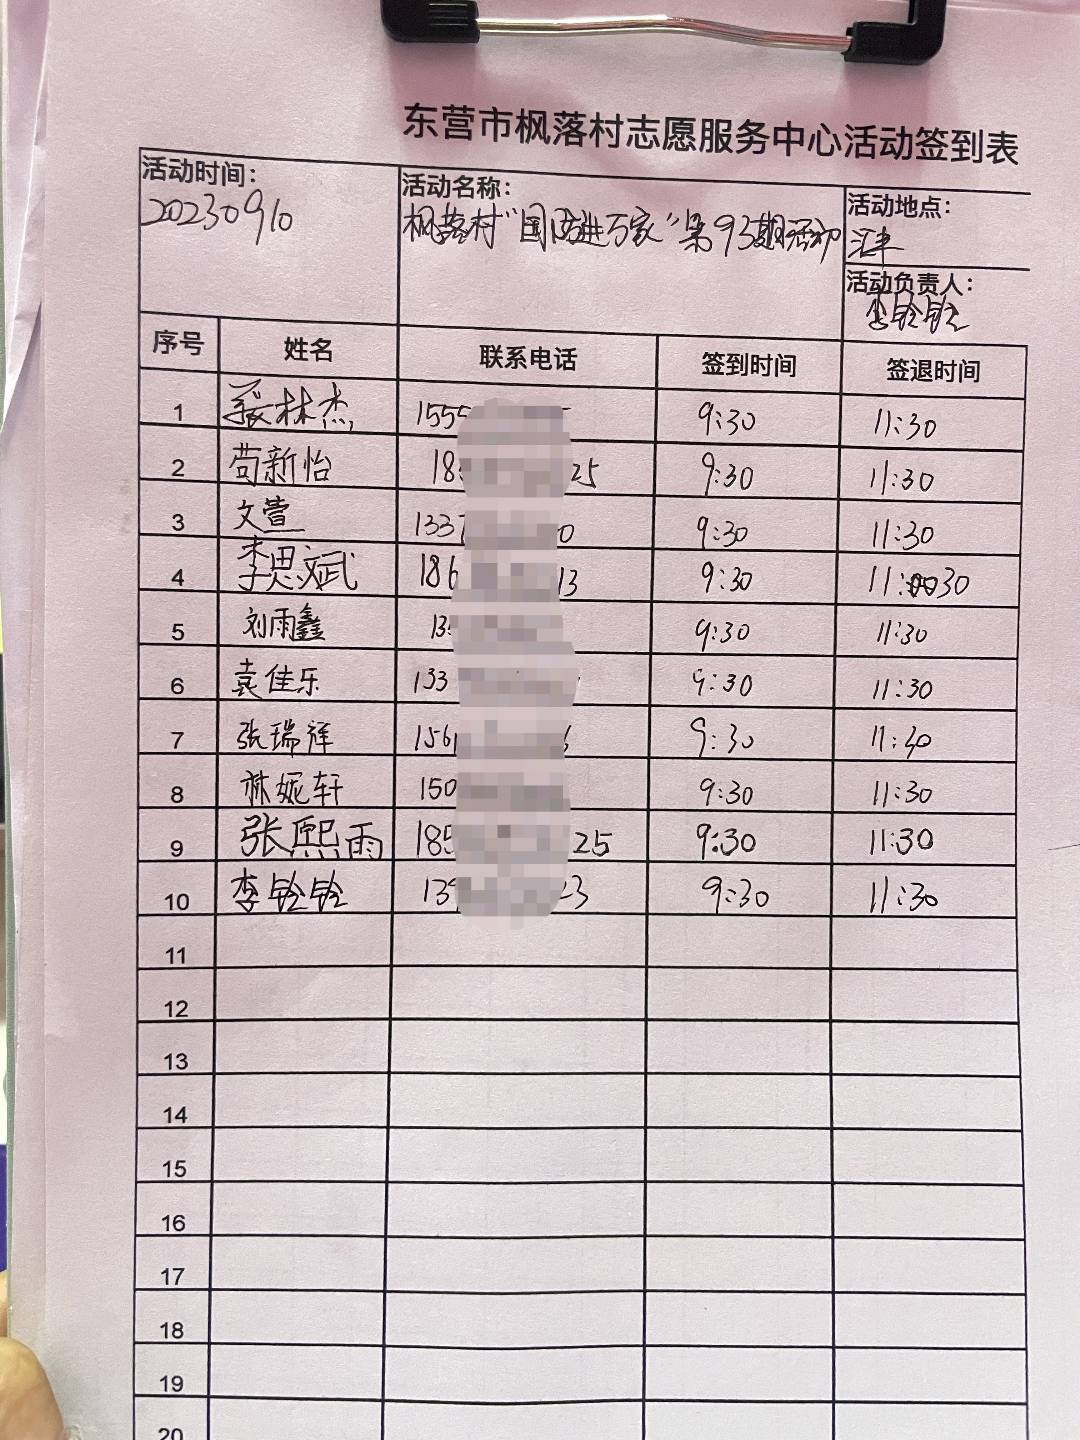 东营市枫落村志愿服务中心活动签到表
活动时间： 活动名称： 活动地点：
20230910 枫落村“国防进万家”第93期活动 汇丰
活动负责人：
李铃铃
序号 姓名 联系电话 签到时间 签退时间
1 林杰 1555 9:30 11:30
2 苟新怡 18 25 9:30 11:30
3 文萱 133 0 9:30 11:30
4 李思斌 186 13 9:30 11:30
5 刘雨鑫 13 9:30 11:30
6 袁佳乐 133 9:30 11:30
7 张瑞祥 156 9:30 11:30
8 林妮轩 150 9:30 11:30
9 张熙雨 185 25 9:30 11:30
10 李铃铃 13 3 9:30 11:30
11
12
13
14
15
16
17
18
19
20